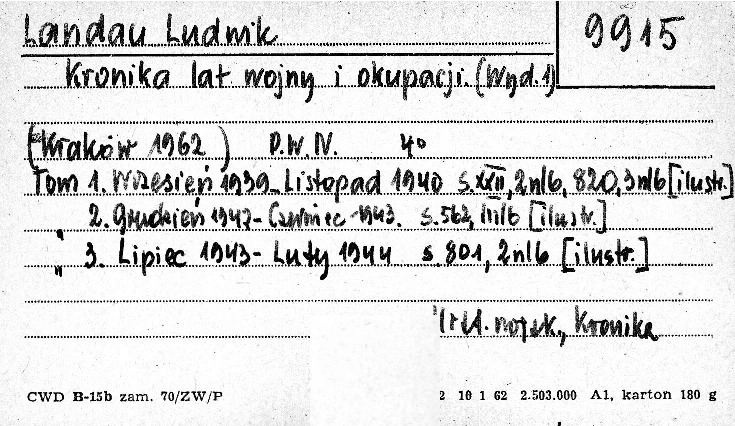 Landau Ludwik
9915
Kronika lat wojny i okupacji. (Wyd.1)
(Kraków 1962) P.W.N. 4°
Tom 1. Wrzesień 1939-Listopad 1940 s.XXII, 2nlb, 820, 3nlb [ilustr.]
" 2. Grudzień 1942-Czerwiec 1943. s.562, nlb [ilustr.]
" 3. Lipiec 1943- Luty 1944 s.801, 2nlb [ilustr.]
Kronika
CWD B-15b zam. 70/ZW/P
2 10 1 62 2.503.000 A1, karton 180 g